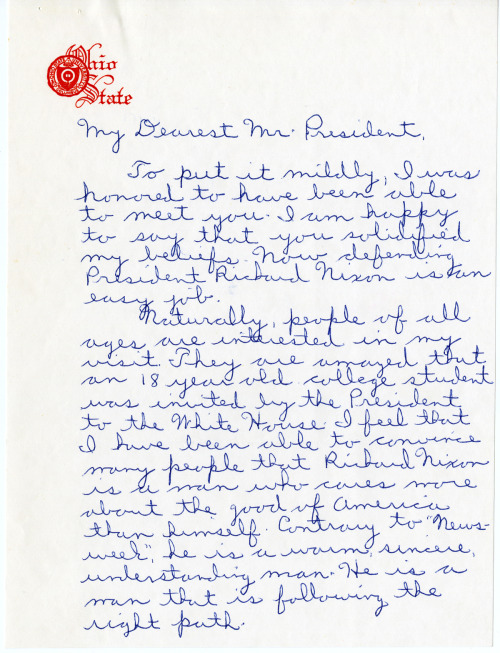 Ohio
State
My Dearest Mr. President,
To put it mildly, I was
honored to have been able
to meet you. I am happy
to say that you solidified
my beliefs. Now defending
President Richard Nixon is an
easy job.
Naturally, people of all
ages are interested in my
visit. They are amazed that
an 18 year old college student
was invited by the President
to the White House. I feel that
I have been able to convince
many people that Richard Nixon
is a man who cares more
about the good of America
than himself. Contrary to "News-
week", he is a warm, sincere,
understanding man. He is a
man that is following the
right path.